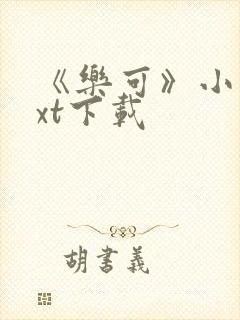 《樂可》小
xt下載
胡書義